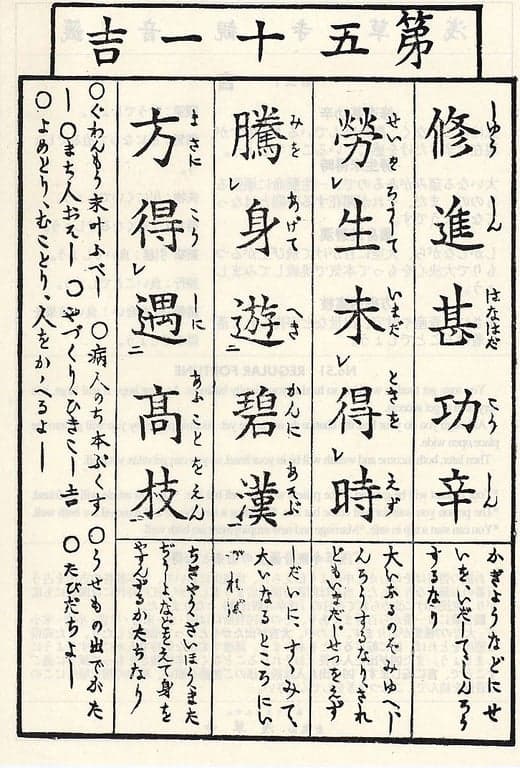 第五十一吉
修進甚功辛
しゆう しん はなはだ こう しん
かぎょうなどにせ
いをいだしてしんろう
するなり
勞レ生未レ得レ時
せいをろうして いまだ ときを えず
大いなるのぞみゆへし
んろうするなりされ
どもいまだじせつをえず
騰レ身遊二碧漢一
みを あげて へきかんに あそぶ
しだいに、すゝみて、
大いなるところにい
方得レ遇二高枝一
まさに こうしに あふことをえん
ちぎやうざいほうまた
やすんずるかたちなり
○ぐわんもう末叶ふべし ○病人のち本ぷくす ○うせもの出でがた
し ○まち人おそし ○やづくり、ひきこし吉 ○たびだちよし
○よめとり、むことり、人をかゝへるよし